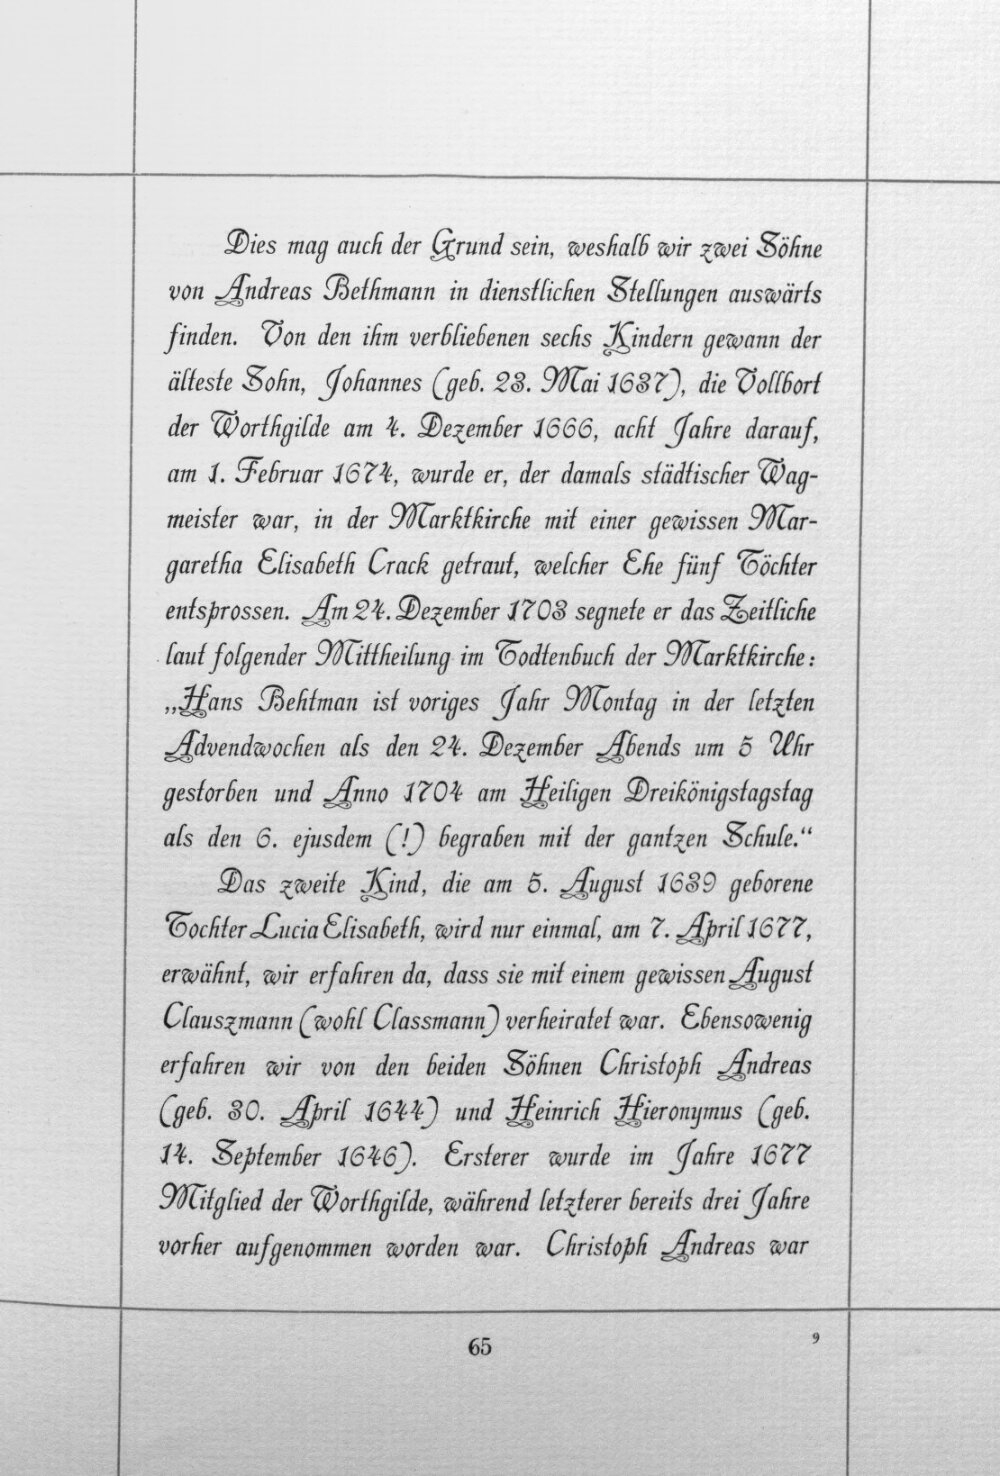 Dies mag auch der Grund sein, weshalb wir zwei Söhne
von Andreas Bethmann in dienstlichen Stellungen auswärts
finden. Von den ihm verbliebenen sechs Kindern gewann der
älteste Sohn, Johannes (geb. 23. Mai 1637), die Vollbort
der Worthgilde am 4. Dezember 1666, acht Jahre darauf,
am 1. Februar 1674, wurde er, der damals städtischer Wag-
meister war, in der Marktkirche mit einer gewissen Mar-
garetha Elisabeth Crack getraut, welcher Ehe fünf Töchter
entsprossen. Am 24. Dezember 1703 segnete er das Zeitliche
laut folgender Mittheilung im Todtenbuch der Marktkirche:
„Hans Behtman ist voriges Jahr Montag in der letzten
Advendwochen als den 24. Dezember Abends um 5 Uhr
gestorben und Anno 1704 am Heiligen Dreikönigstagstag
als den 6. ejusdem (!) begraben mit der gantzen Schule.“
Das zweite Kind, die am 5. August 1639 geborene
Tochter Lucia Elisabeth, wird nur einmal, am 7. April 1677,
erwähnt, wir erfahren da, dass sie mit einem gewissen August
Clauszmann (wohl Classmann) verheiratet war. Ebensowenig
erfahren wir von den beiden Söhnen Christoph Andreas
(geb. 30. April 1644) und Heinrich Hieronymus (geb.
14. September 1646). Ersterer wurde im Jahre 1677
Mitglied der Worthgilde, während letzterer bereits drei Jahre
vorher aufgenommen worden war. Christoph Andreas war
65
9